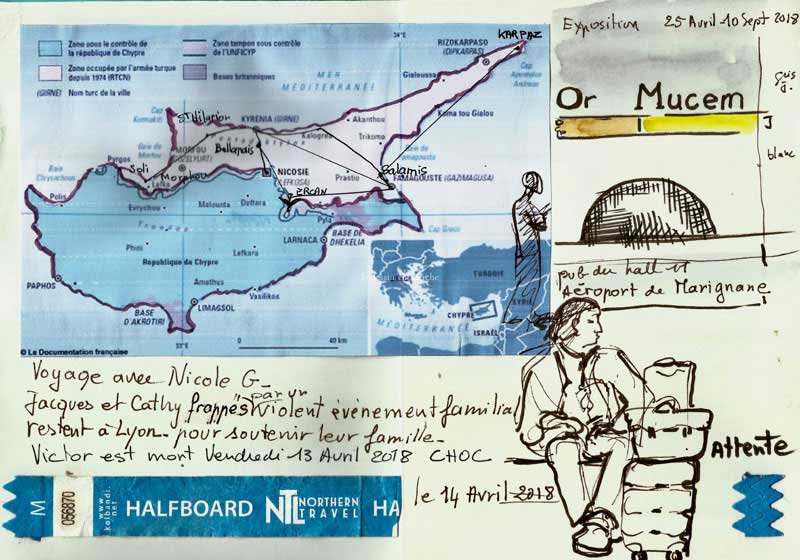 Zone sous le contrôle de
la république de Chypre
Zone occupée par l'armée turque
depuis 1974 (RTCN)
(GIRNE) Nom turc de la ville
Zone tampon sous contrôle
de l'UNFICYP
Bases britanniques
34°E
KARPAZ
RIZOKARPASO
(DIPKARPAS)
Cap
Apostolos
Andreas
MER
MÉDITERRANÉE
Gialoussa
Koma tou Gialou
Cap
Kormakiti
St Hilarion
KYRENIA (GIRNE)
Akanthou
Kalogrea
Trikomo
Baie de
Morfou
MORFOU
(GÜZELYURT)
Bellapais
Baie de
Famagouste
Salamis
FAMAGOUSTE (GAZIMAGUSA)
Prastio
NICOSIE
(LEFKOSA)
ERCAN
Baie
Chrysochou
Pyrgos
Soli
Morphou
Lefka
Polis
Evrychou
Malounta
Deftera
Pyla
Cap Greco
BASE DE
DHEKELIA
LARNACA
Phini
Lefkara
République de Chypre
PAPHOS
Amathus
Vasilikos
LIMASSOL
BASE
D'AKROTIRI
33°E
0
40 km
TURQUIE
GRÈCE
SYRIE
CHYPRE
MÉDITERRANÉE
ISRAËL
© La Documentation française
Exposition 25 Avril 10 Sept 2018
gris
g.
Or Mucem
blanc
pub du hall 1
Aéroport de Marignane
Voyage avec Nicole G_
Jacques et Cathy frappés par un violent événement familial
restent à Lyon_ pour soutenir leur famille_
Victor est mort Vendredi 13 Avril 2018 CHOC
Attente
le 14 Avril 2018
M
056870
www.kolbandi.net
HALFBOARD
NTL NORTHERN
TRAVEL
HA